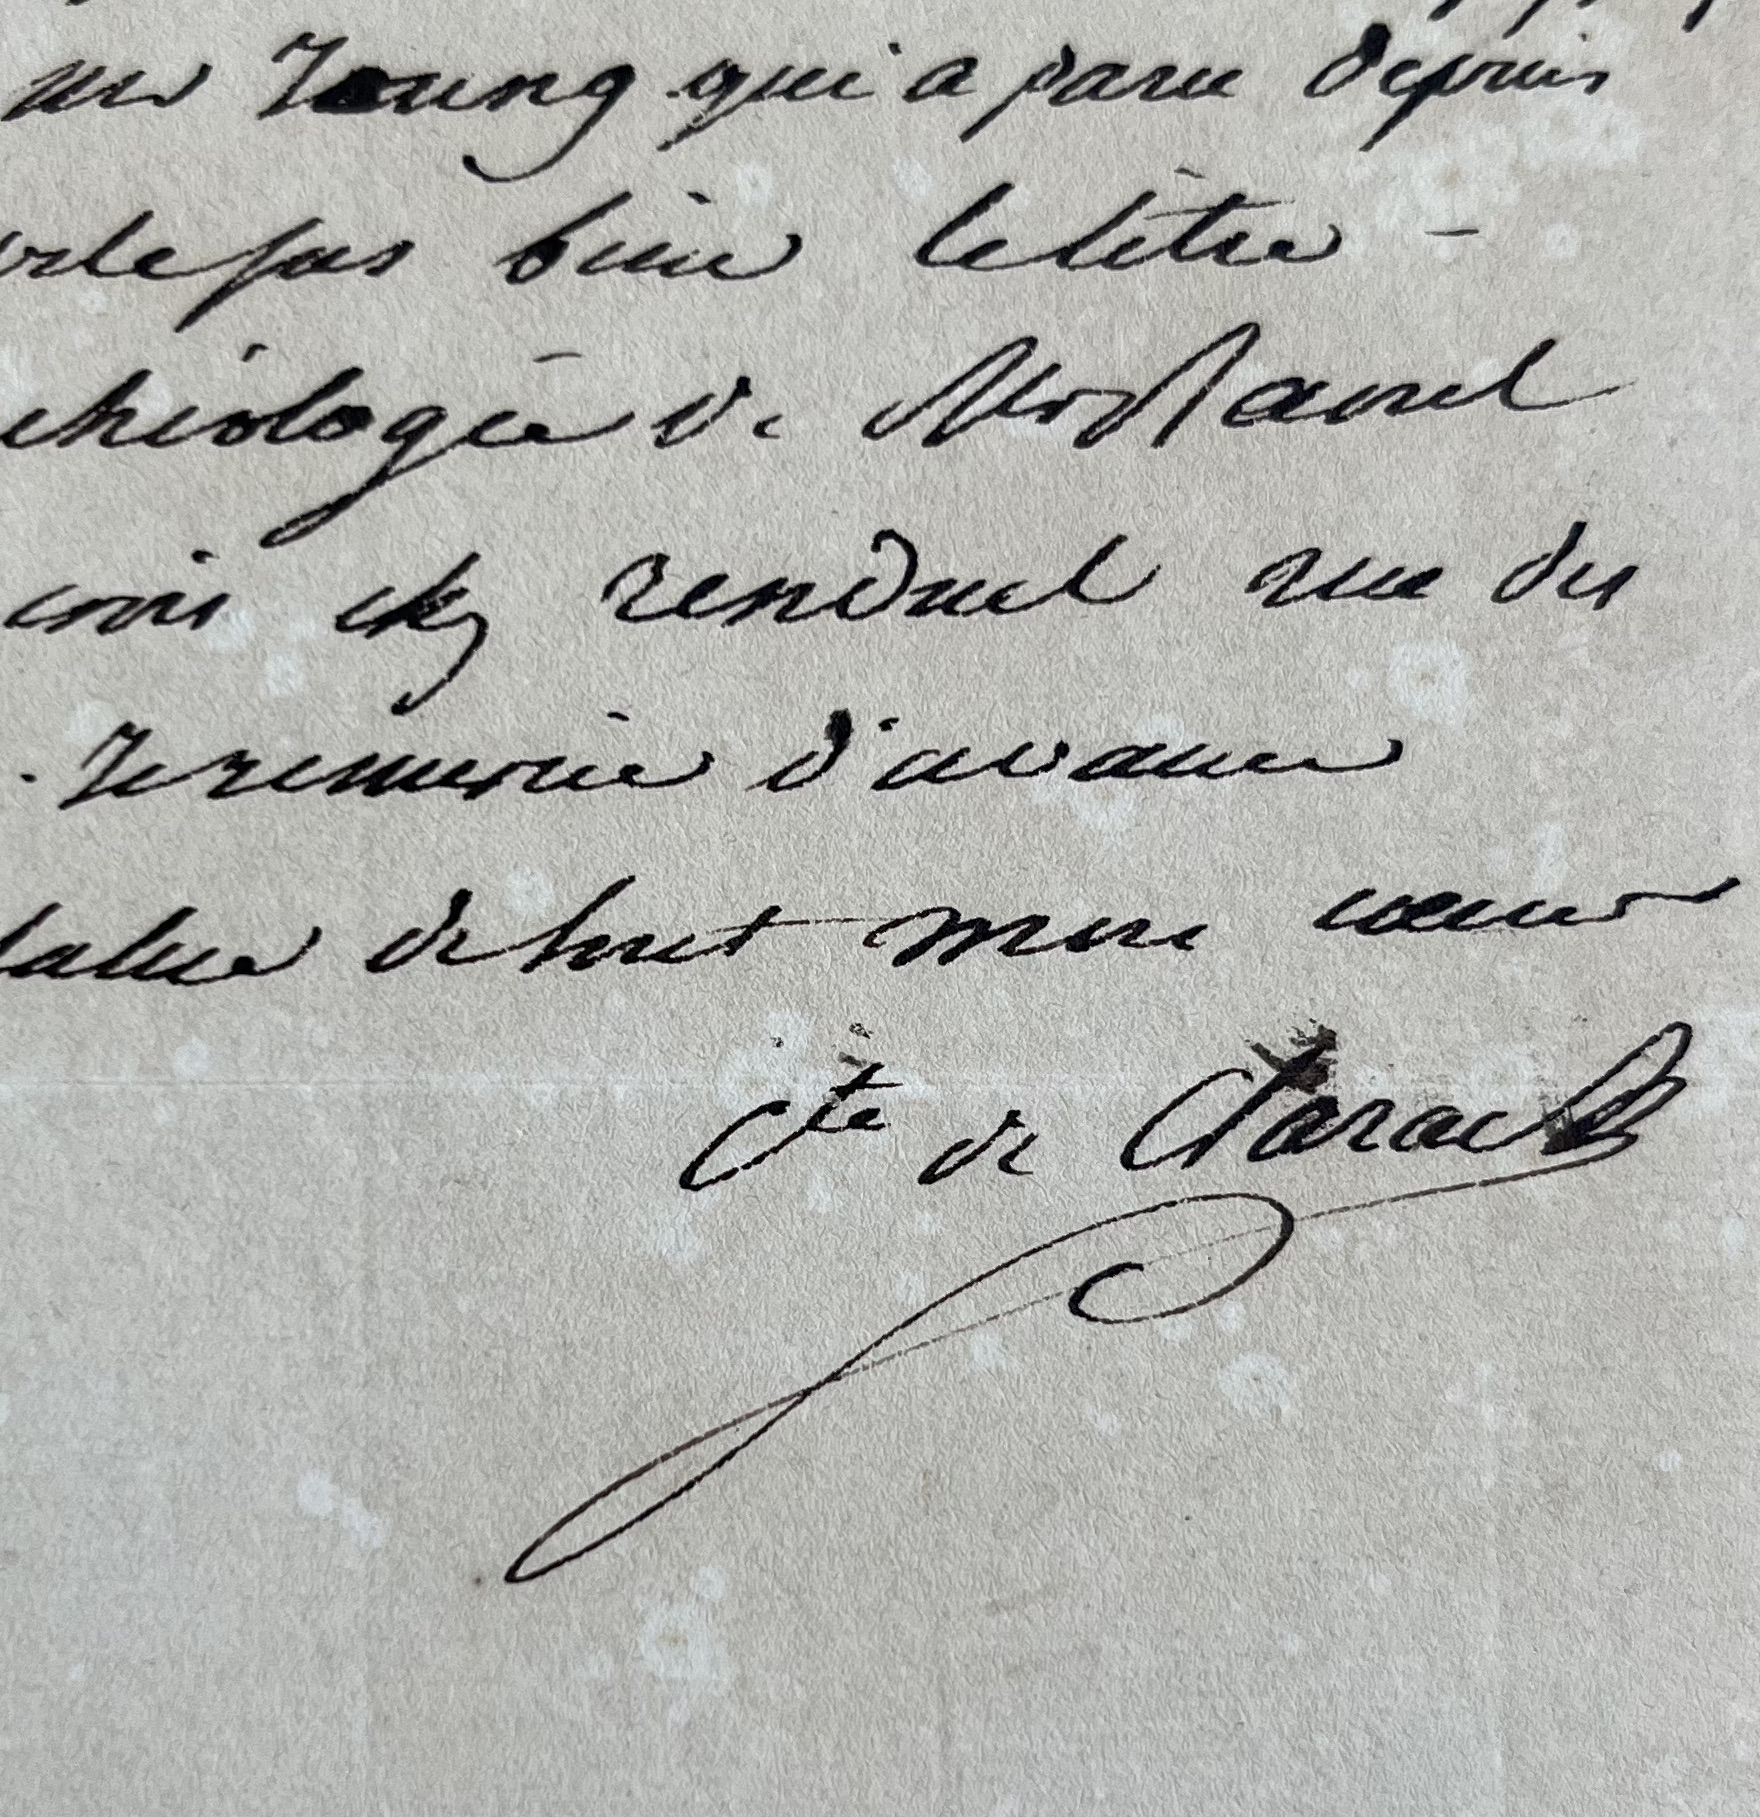 mr Young qui a paru depuis
pas bien le titre -
chéologie de Mr Raoul
crois chez renduel rue des
. Je remercie d'avance
salue de tout mon coeur
Cte de Clarac